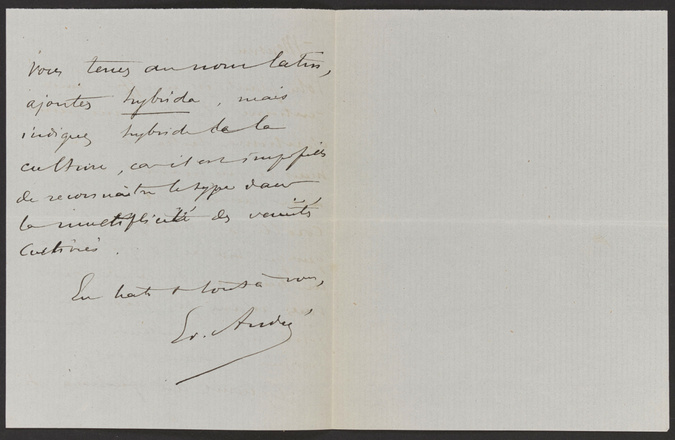 vous tenez au nom latin,
ajoutez hybrida, mais
indiquez hybride de la
culture, car il est impossible
de reconnaître le type dans
la multiplicité des variétés
cultivées.
En hâte & tout à vous,
Ed. André